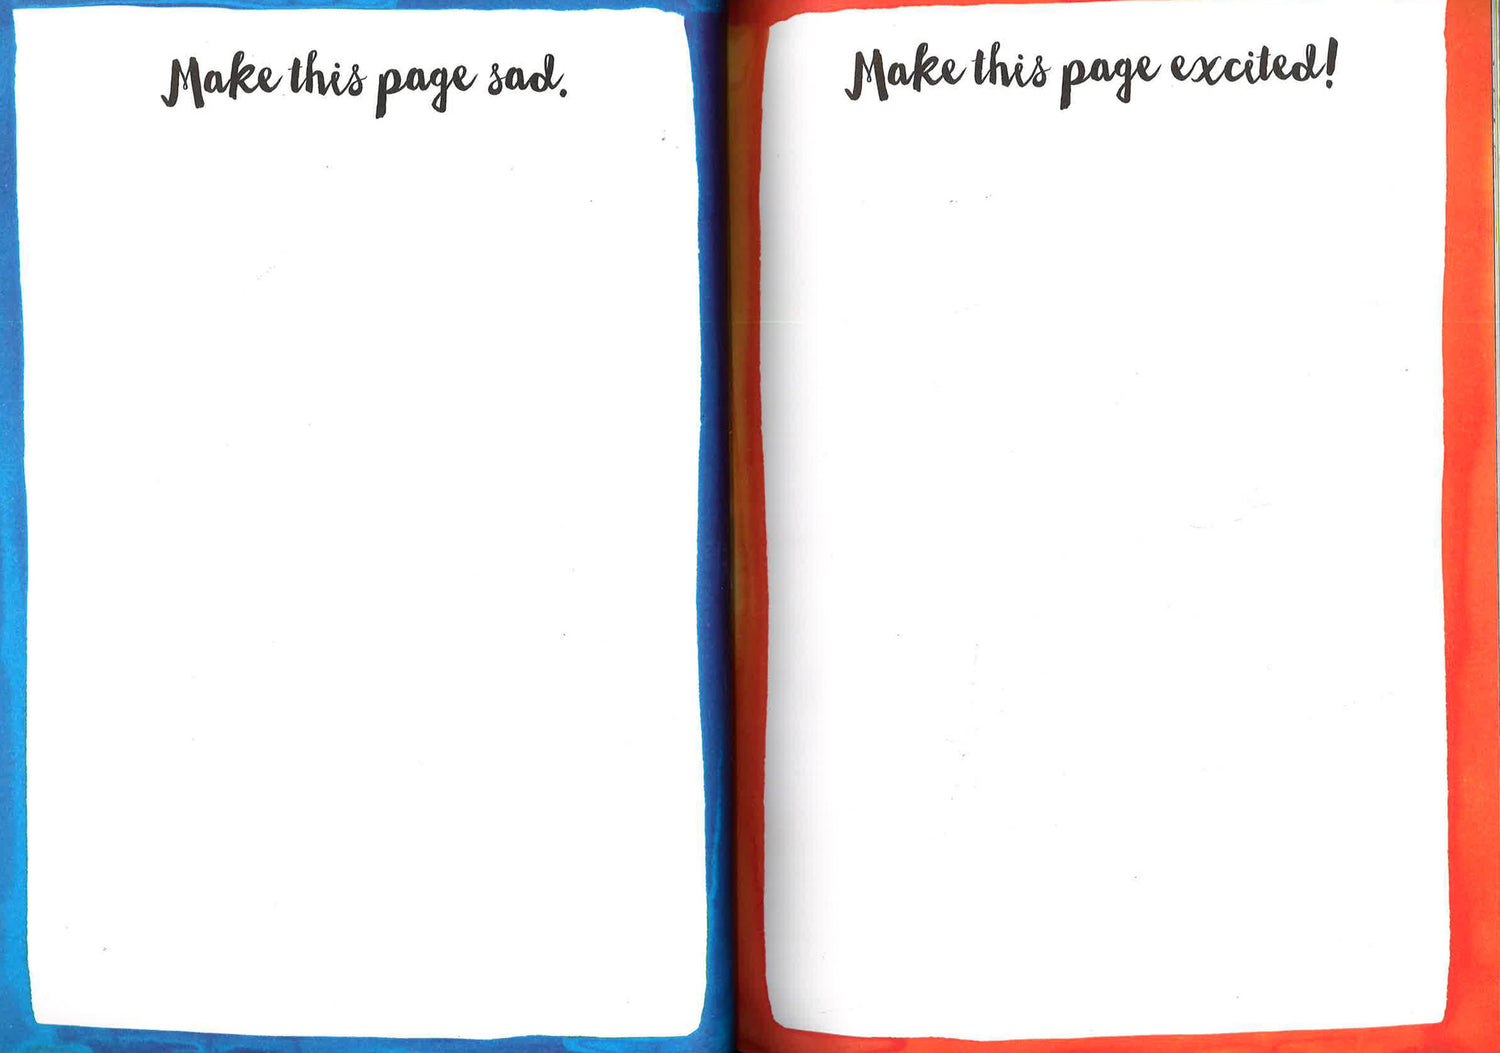 Make this page sad.
Make this page excited!